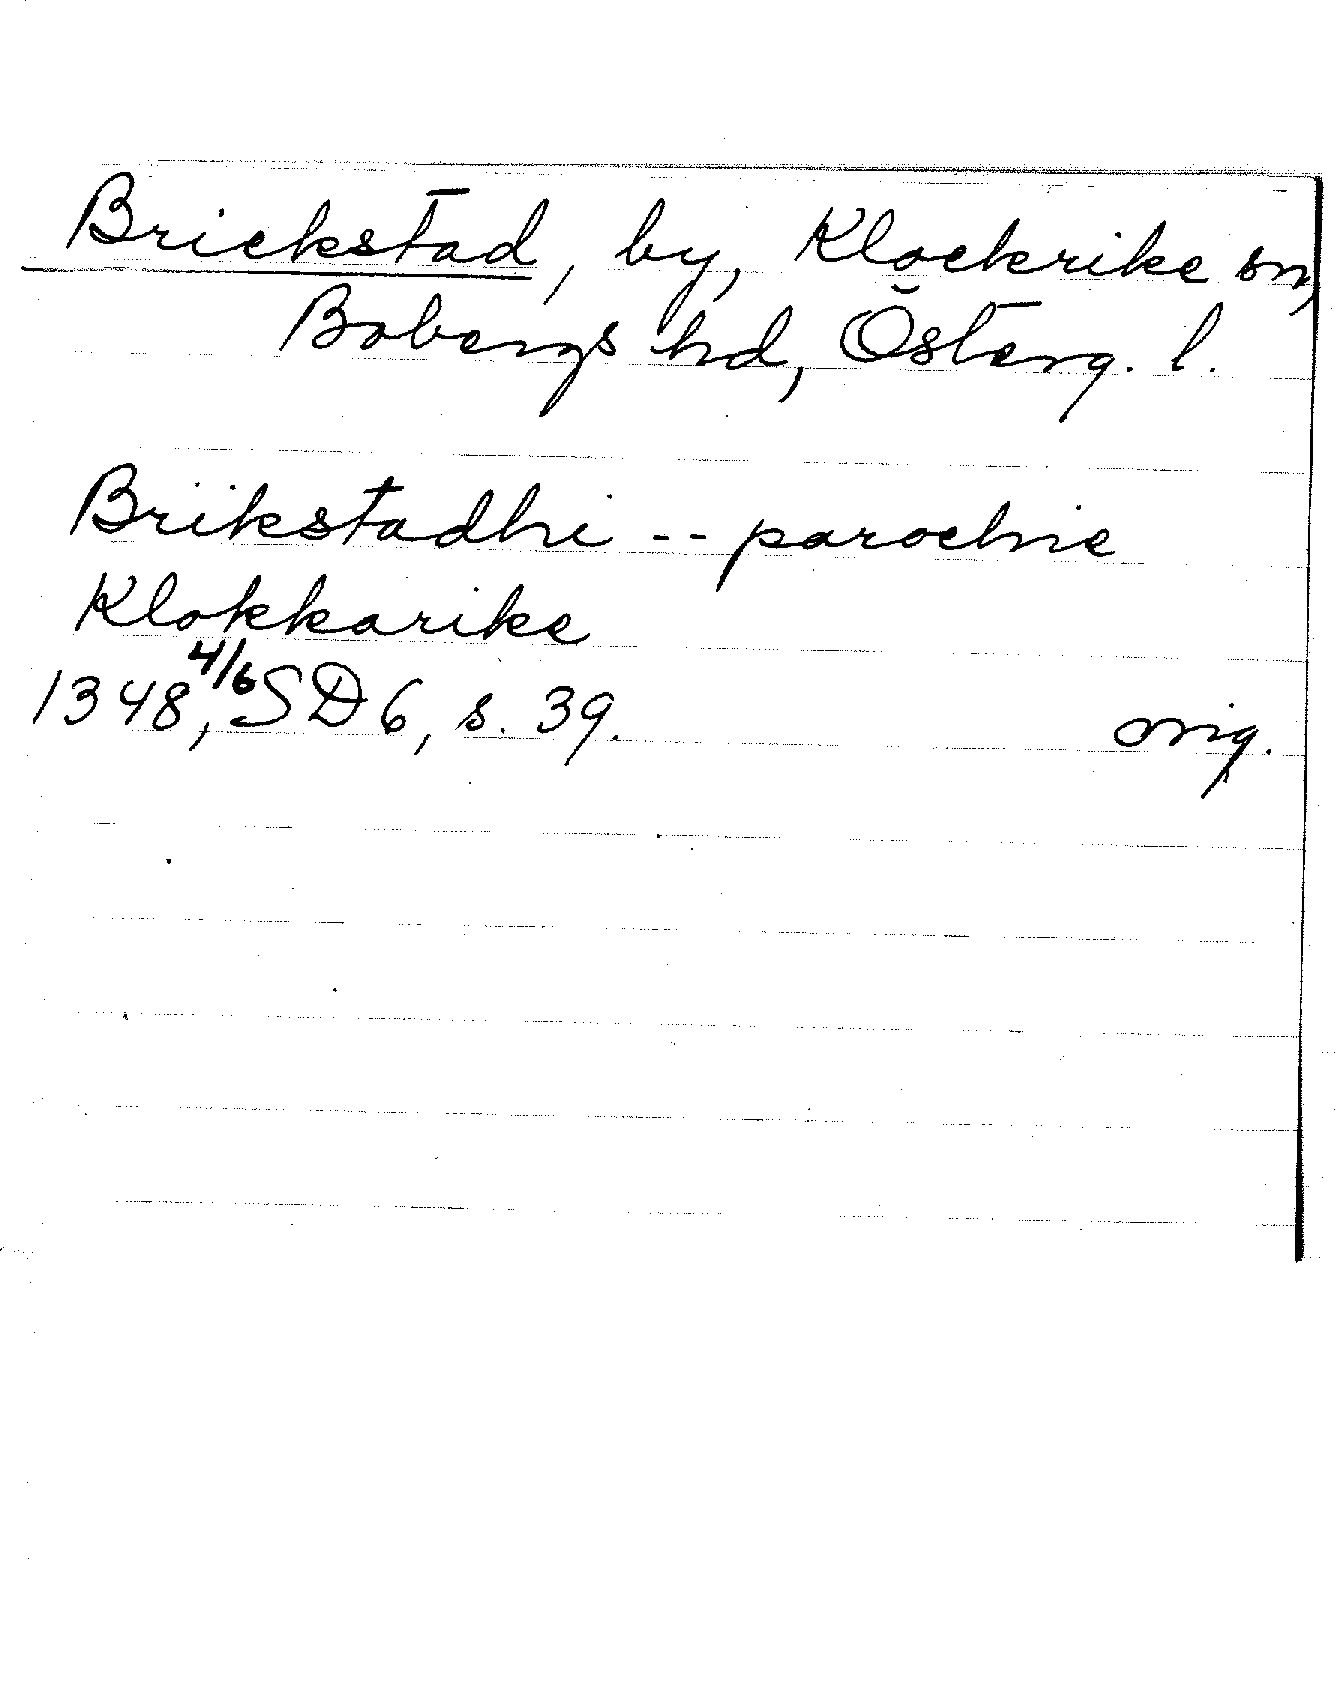 Brickstad, by, Klockrike sn,
Bobergs hd, Österg. l.
Brikstadhi -- parochie
Klokkarike
1348, 4/6 SD 6, s. 39. orig.